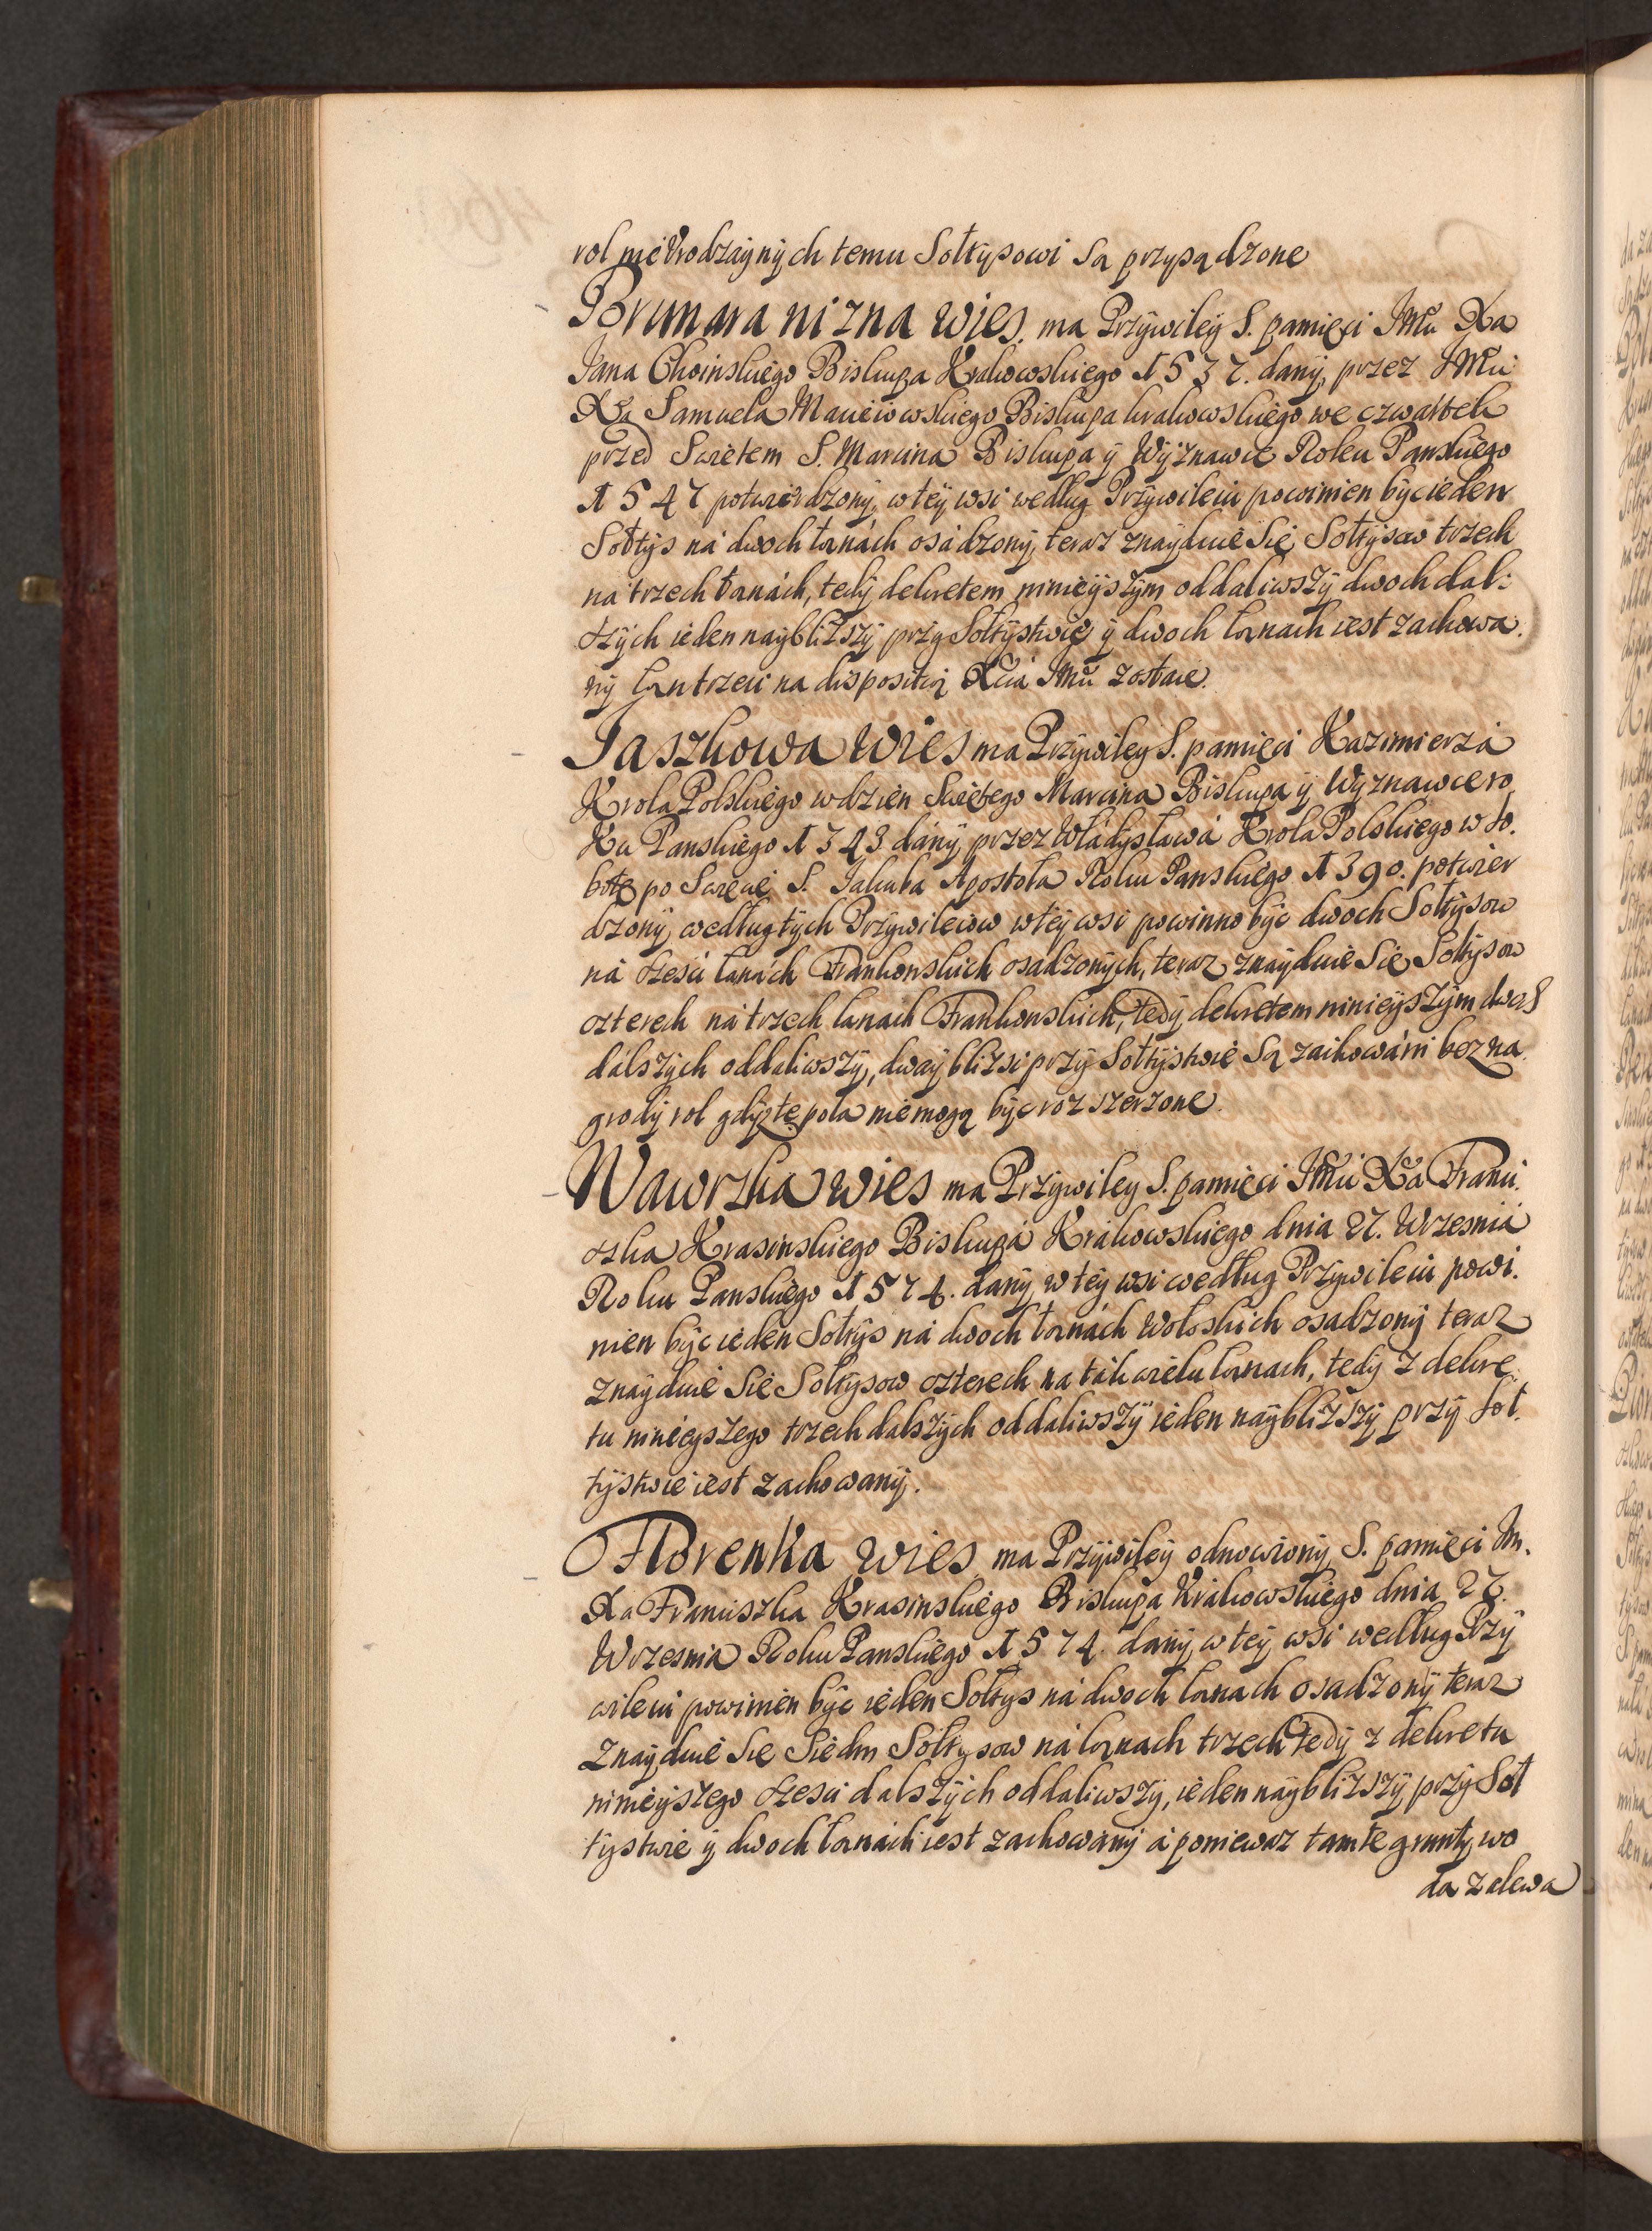 rol nieVrodzaynych temu Sołtysowi Są przysądzone
Brunara nizna wies. ma Przywiley S. pamięci JMći Xa
Jana Choinskiego Biskupa Krakowskiego 1537. dany, przez JMći
Xa Samuela Macieiowskiego Biskupa krakowskiego we czwartek
przed Swietem S. Marcina Biskupa ÿ Wÿznawce Roku Panskiego
1547 potwierdzony, w teÿ wsi według Przÿwileiu powinien byc ieden
Sołtÿs na dwoch łanách osádzonÿ, teraz znaÿduie Się Sołtÿsow trzech
na trzech łanách, tedÿ dekretem ninieÿszÿm oddaliwszÿ dwoch dal:
szÿch ieden naÿbliższÿ przÿ Sołtÿstwie ÿ dwoch łanach iest zachowa.
nÿ łan trzeci na dispositią Xcia JMći zostaie.
Jaszkowa wies ma Przÿwileÿ S. pamięci Kazimierzá
Krola Polskiego w dzien Swiętego Marcina Biskupa ÿ Wÿznawce ro,
Ku Panskiego 1343 danÿ, przez Władÿsławá Krola Polskiego w So.
botę po Swięcie S. Jakuba Apostoła Roku Panskiego 1390. potwier
dzonÿ, według tÿch Przÿwileiow w teÿ wsi powinno bÿc dwoch Sołtÿsow
ná szesci łanách Frankonskich osadzonÿch, teraz znaÿduie Się Sołtÿsow
czterech na trzech łanach Frankonskich, tedÿ dekretem ninieÿszÿm dwoch
dálszÿch oddaliwszÿ, dwaÿ bliżsi przÿ Sołtÿstwie Są zachowáni bez na
grodÿ rol gdÿż te pola nie mogą bÿc rozszerzone.
Wawrzka wies ma Przÿwileÿ S. pamięci JMći Xa Franci.
szka Krasinskiego Biskupá Krakowskiego dnia 27. Wrzesniá
Roku Panskiego 1574. danÿ, w teÿ wsi według Przÿwileiu powi.
nien bÿc ieden Sołtÿs ná dwoch łanách Wołoskich osadzonÿ teraz
znaÿduie Się Sołtÿsow czterech na ták wielu łanach, tedÿ z dekre.
tu ninieÿszego trzech dalszÿch oddaliwszÿ ieden naÿbliższÿ przÿ Soł.
tÿstwie iest zachowanÿ.
Florenka wies ma Przÿwileÿ odnowionÿ, S. pamięci Jm.
Xa Franciszka Krasinskiego Biskupa Krakowskiego dnia 27.
Wrzesnia Roku Panskiego 1574. danÿ, w teÿ wsi według Przÿ
wileiu powinien bÿc ieden Sołtÿs ná dwoch łanach osadzonÿ teraz
znaÿduie Się Siedm Sołtÿsow ná łanach trzech tedÿ z dekretu
ninieÿszego szesci dalszÿch oddaliwszÿ, ieden naÿbliższÿ przÿ Soł
tÿstwie ÿ dwoch łanách iest zachowanÿ á poniewaz tamte gruntÿ wo
da zalewa